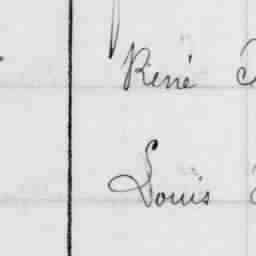 René
Louis